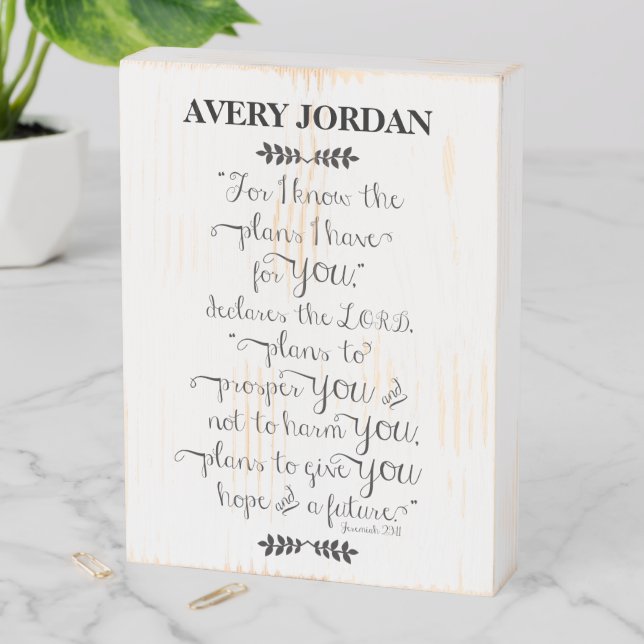 AVERY JORDAN
“For I know the
plans I have
for YOU,”
declares the LORD,
“plans to
prosper YOU and
not to harm YOU,
plans to give YOU
hope and a future.”
Jeremiah 29:11